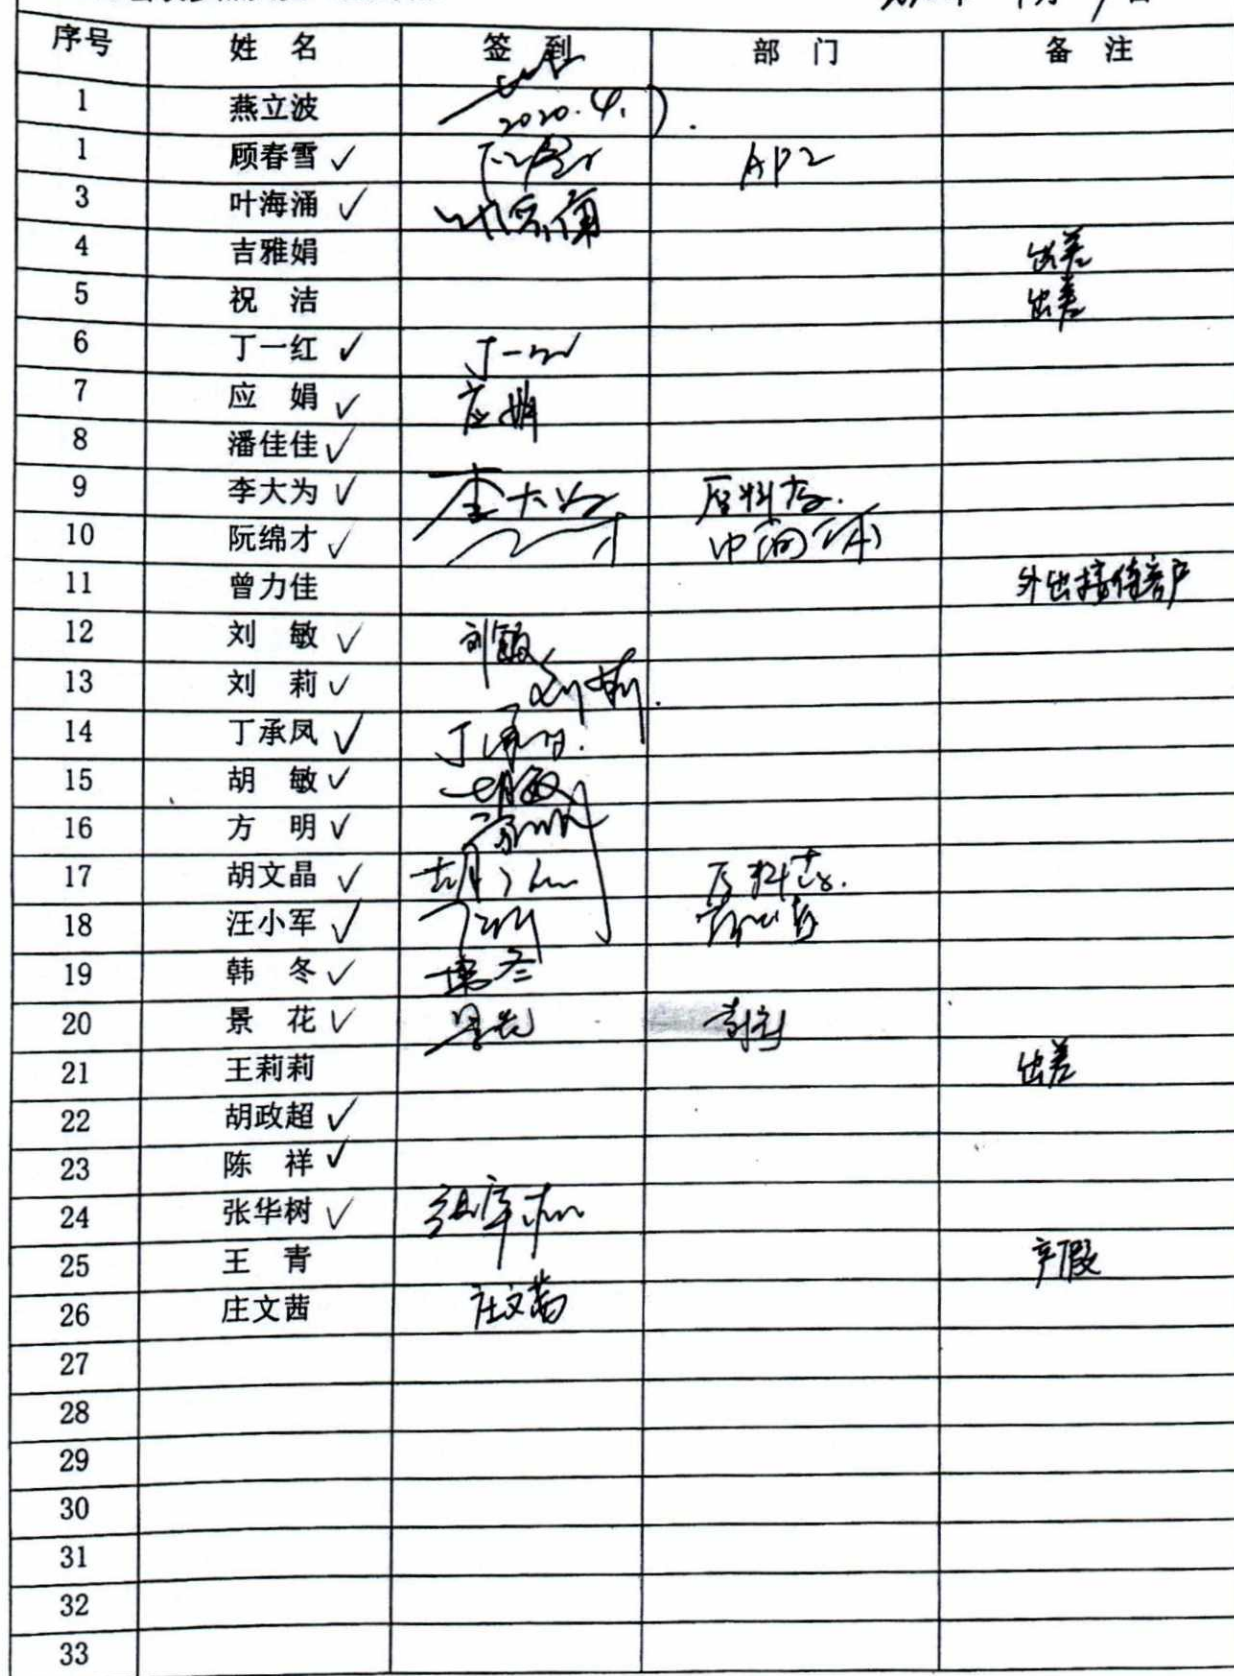 序号 姓 名 签 到 部 门 备 注
1 燕立波 2020.4.7.
1 顾春雪 ✓ AP2
3 叶海涌 ✓ 叶海涌
4 吉雅娟 出差
5 祝 洁 出差
6 丁一红 ✓ 丁一红
7 应 娟 ✓ 应娟
8 潘佳佳 ✓
9 李大为 ✓ 李大为 原料药.
10 阮绵才 ✓ 中间体
11 曾力佳 外出接待客户
12 刘 敏 ✓ 刘敏
13 刘 莉 ✓ 刘莉.
14 丁承凤 ✓ 丁承凤.
15 胡 敏 ✓ 胡敏
16 方 明 ✓ 方明
17 胡文晶 ✓ 胡文晶 原料药.
18 汪小军 ✓
19 韩 冬 ✓ 韩冬
20 景 花 ✓ 景花
21 王莉莉 出差
22 胡政超 ✓
23 陈 祥 ✓
24 张华树 ✓ 张华树
25 王 青 产假
26 庄文茜 庄文茜
27
28
29
30
31
32
33